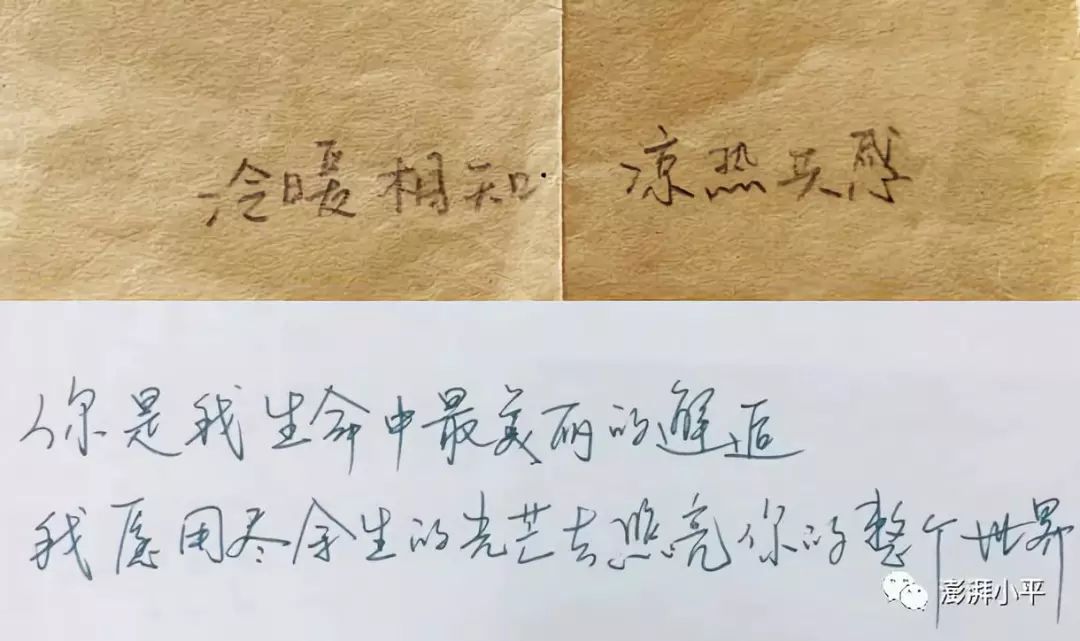 冷暖相知 凉热共感
你是我生命中最美丽的邂逅
我愿用尽余生的光芒去照亮你的整个世界
澎湃小平